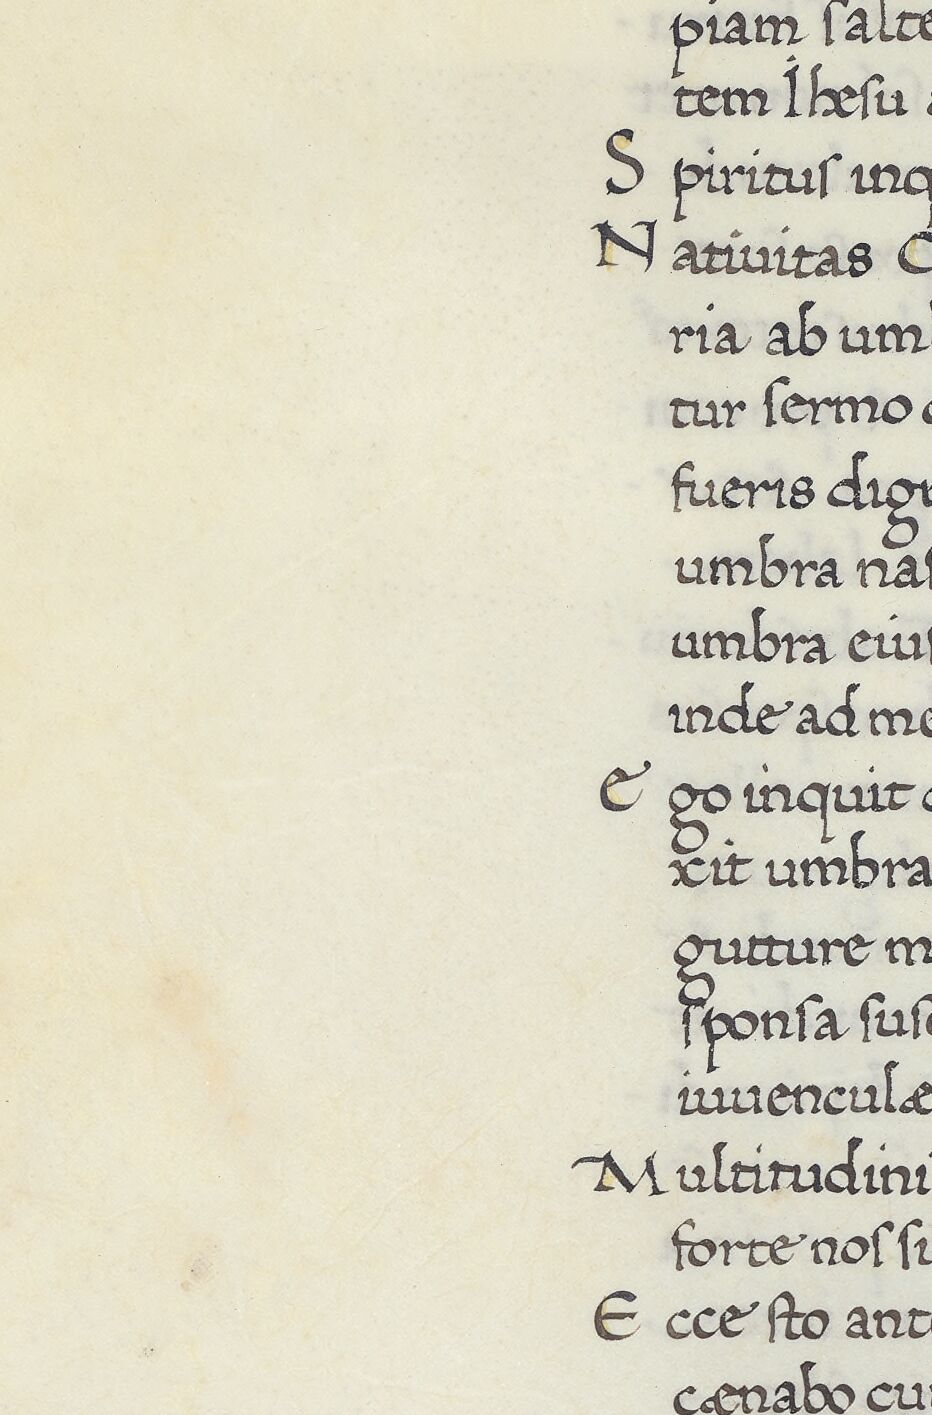 piam salte
tem Ihesu a
Spiritus inq
Natiuitas C
ria ab umb
tur sermo
fueris dign
umbra nas
umbra eius
inde ad me
Ego inquit
xit umbra
gutture m
sponsa susc
iuuenculæ
Multitudini
forte nos si
Ecce sto ante
cænabo cum